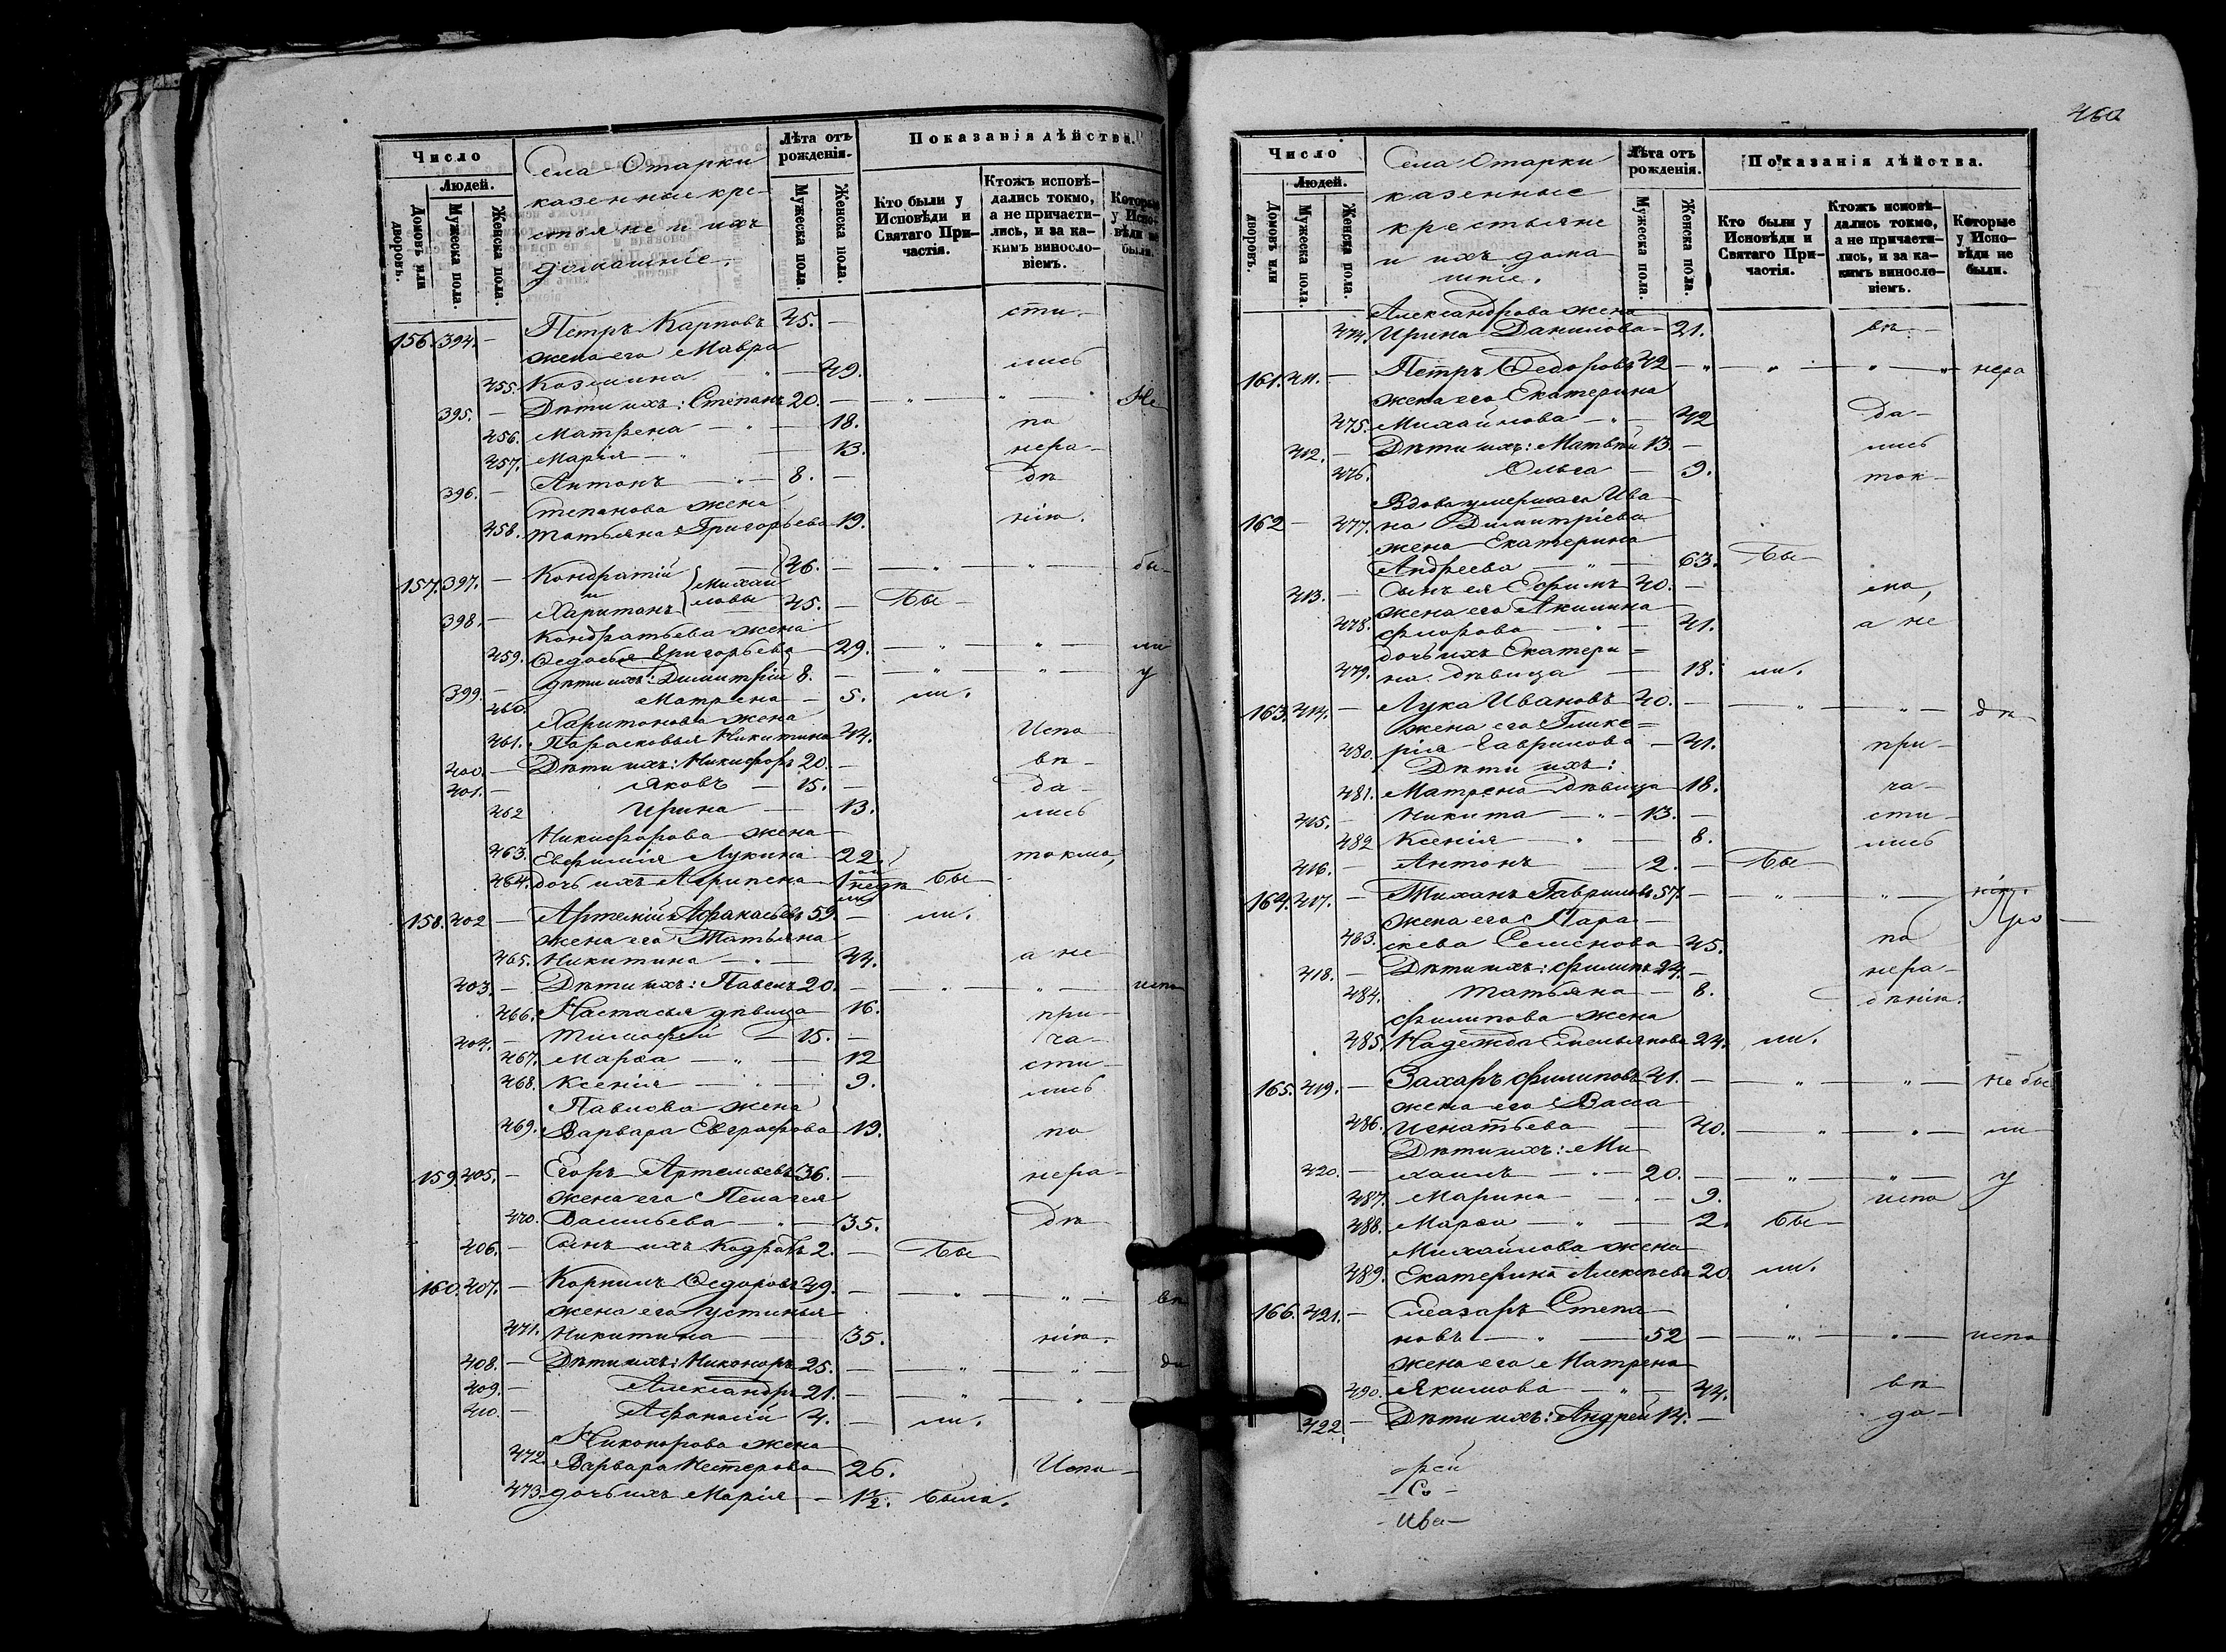 Число
Людей.
Домовъ или дворовъ.
Мужеска пола.
Женска пола.
Села Отарки
казенные кре-
стьяне и ихъ
домашніе.
Лѣта отъ рожденія.
Мужеска пола.
Женска пола.
Показанія дѣйства.
Кто были у Исповѣди и Святаго Причастія.
Ктожъ исповѣдались токмо, а не причастились, и за какимъ винословіемъ.
Которые у Исповѣди не были.
156. 394. — Петръ Карповъ 45. — сти-
жена его Мавра
455. Козмина — 49. лись
395. — Дѣти ихъ: Степанъ 20. — Не
456. Матрена — 18. по
457. Марія — 13. нера-
396. — Антонъ — 8. — дѣ
Степанова жена
458. Татьяна Григорьева 19. нію.
157. 397. — Кондратій 46. — бы-
и Михайловы
398. — Харитонъ 45. — Бы-
Кондратьева жена
459. Ѳедосья Григорьева 29. — ли
399. — дѣти ихъ: Димитрій 8. — у
460. Матрена — 5. ли.
Харитонова жена
461. Парасковья Никитина 44. Испо-
400. — Дѣти ихъ: Никифоръ 20. — вѣ-
401. — Яковъ — 15. — да-
462 Ирина — 13. лись
Никифорова жена
463. Евфимія Лукина 22. токмо,
464. дочь ихъ Агрипена 1 недѣли Бы-
158. 402 — Артемій Афанасьевъ 59. — ли.
жена его Татьяна
465. Никитина — 44. а не
403. — Дѣти ихъ: Павелъ 20. — испо
466. Настасья дѣвица 16. при-
404. — Тимофей — 15. — ча-
467. Марѳа — 12 сти-
468. Ксенія — 9. лись
Павлова жена
469. Варвара Евграфова 19. по
159. 405. — Егоръ Артемьевъ 36. — нера-
жена его Пелагея
470. Васильева — 35. дѣ
406. — Сынъ ихъ Кодратъ 2. — Бы-
160. 407. — Корнилъ Ѳедоровъ 49. — вѣ
жена его Устинья
471. Никитина — 35. нію.
408. — Дѣти ихъ: Никоноръ 25. — да
409. — Александръ 21. —
410. — Афанасій 4. — ли.
Никонорова жена
472. Варвара Нестерова 26. Испо-
473. дочь ихъ Марія — 1½. была.
460
Число
Людей.
Домовъ или дворовъ.
Мужеска пола.
Женска пола.
Села Отарки
казенные
крестьяне
и ихъ дома
шніе.
Лѣта отъ рожденія.
Мужеска пола.
Женска пола.
Показанія дѣйства.
Кто были у Исповѣди и Святаго Причастія.
Ктожъ исповѣдались токмо, а не причастились, и за какимъ винословіемъ.
Которые у Исповѣди не были.
Александрова жена
474. Ирина Данилова — 21. вѣ-
161. 411. — Петръ Ѳедоровъ 42 — нера
жена его Екатерина
475. Михайлова — 42 да-
412. — Дѣти ихъ: Матвѣй 13. — лись
476. Ольга — 9. ток-
Вдова умершаго Ива
162 — 477. на Димитріева
жена Екатерина
Андреева — 63. Бы-
413. — Сынъ ея Ефимъ 40. — мо,
жена его Акилина
478. Флорова — 41. а не
дочь ихъ Екатери-
479. на дѣвица — 18. ли.
163. 414. — Лука Ивановъ 40. — дѣ
жена его Глике-
480. рія Гаврилова — 41. при-
Дѣти ихъ:
481. Матрена дѣвица 18. ча-
415. — Никита — 13. — сти-
482 Ксенія — 8. лись
416. — Антонъ — 2. — Бы-
164. 417. — Тиханъ Гавриловъ 57. — нію.
жена его Пара-
483. скева Семенова 45. по
418. — Дѣти ихъ: Филипъ 24. — нера-
484. Татьяна — 8. дѣнію.
Филипова жена
485. Надежда Емельянова 24. ли.
165. 419. — Захаръ Филиповъ 41. — не бы
жена его Васса
486. Игнатьева — 40. — ли
Дѣти ихъ: Ми
420. — хаилъ — 20. — у
487. Марина — 9. испо
488. Марѳа — 2. Бы-
Михайлова жена
489. Екатерина Алексѣева 20. ли.
166. 421. — Елеазаръ Степа
новъ — 52 — испо
жена его Матрена
490. Якимова — 44. вѣ
422. — Дѣти ихъ: Андрей 14. — да-
Ива-